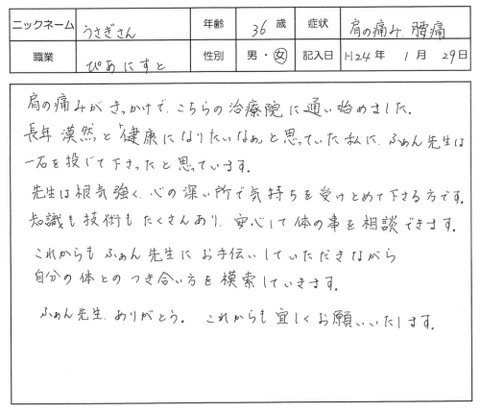 ニックネーム うさぎさん 年齢 36 歳 症状 肩の痛み、腰痛
職業 ぴあにすと 性別 男・女 記入日 H24年 1月 29日
肩の痛みがきっかけで、こちらの治療院に通い始めました。
長年漠然と「健康になりたいなぁ」と思っていた私に、ふぁん先生は
一石を投じて下さったと思っています。
先生は根気強く、心の深い所で気持ちを受けとめて下さる方です。
知識も技術もたくさんあり、安心して体の事を相談できます。
これからもふぁん先生にお手伝いしていただきながら
自分の体とのつき合い方を模索していきます。
ふぁん先生、ありがとう。これからも宜しくお願いいたします。